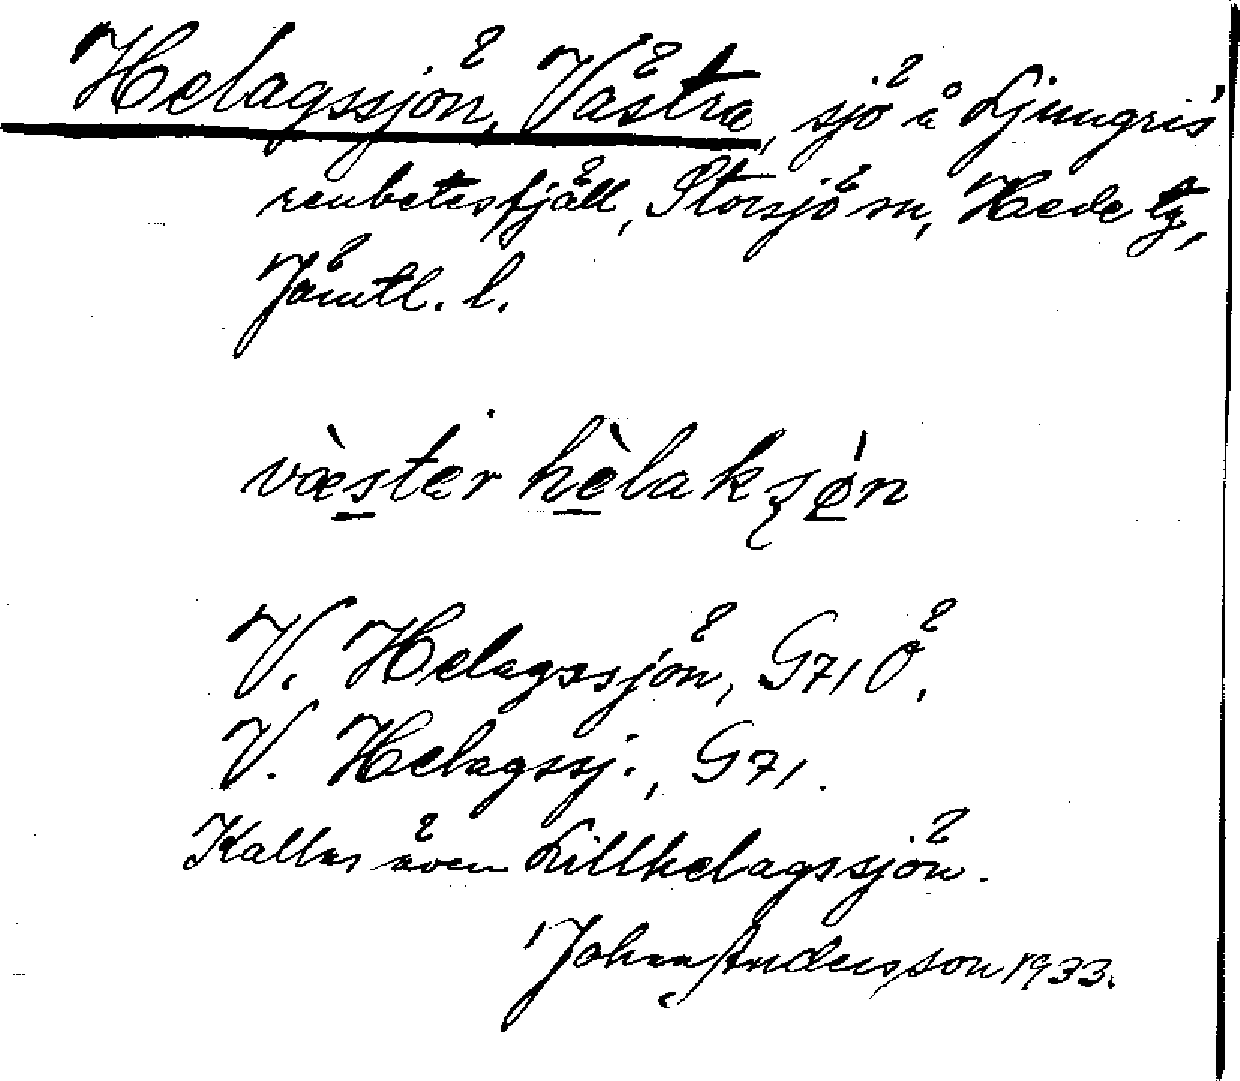 Helagssjön, Västra, sjö å Ljungris
renbetesfjäll, Storsjö sn, Hede tg,
Jämtl. l.
væ̀ster hèlakʂǿn
V. Helagssjön, G71 Ö.
V. Helagssj., G71.
Kallas även Lillhelagssjön.
Johan Andersson 1933.